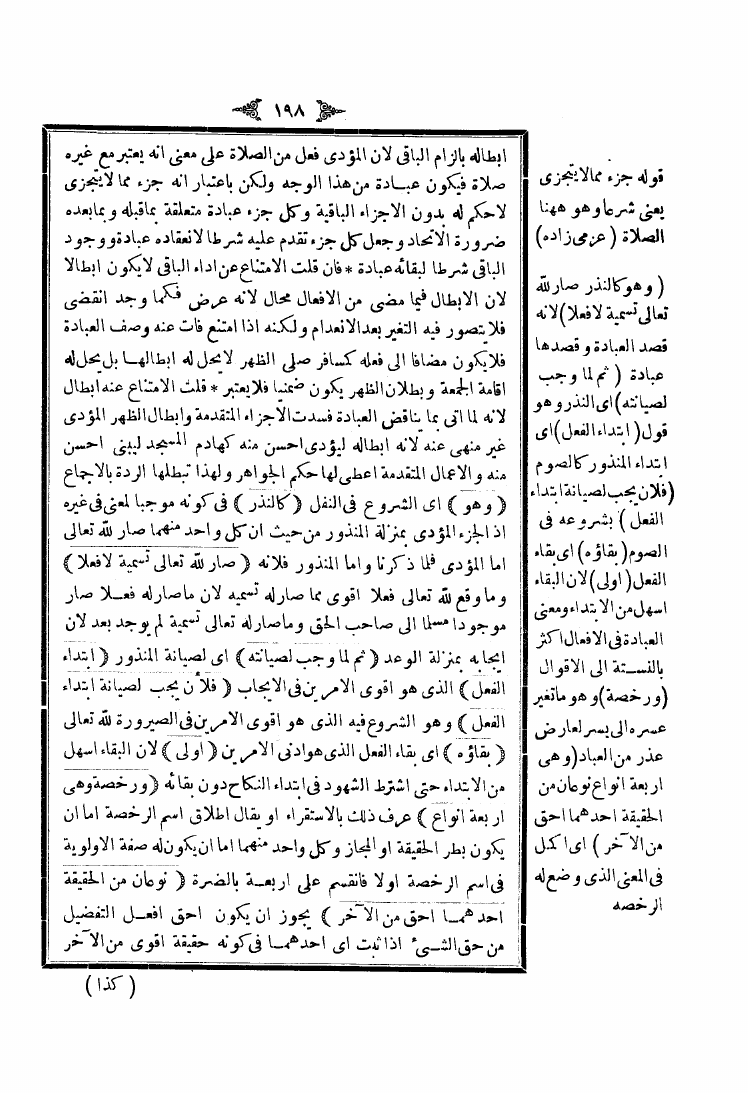 ١٩٨
ابطاله بالزام الباقى لان المؤدى فعل من الصلاة على معنى انه يعتبر مع غيره
صلاة فيكون عبادة من هذا الوجه ولكن باعتبار انه جزء مما لا يتجزى
لاحكم له بدون الاجزاء الباقية وكل جزء عبادة متعلقة بماقبله وبمابعده
ضرورة الاتحاد وجعل كل جزء تقدم عليه شرطا لانعقاده عبادة ووجود
الباقى شرطا لبقائه عبادة * فان قلت الامتناع عن اداء الباقى لا يكون ابطالا
لان الابطال فيما مضى من الافعال محال لانه عرض فكما وجد انقضى
فلا يتصور فيه التغير بعد الانعدام ولكنه اذا امتنع فات عنه وصف العبادة
فلا يكون مضافا الى فعله كمسافر صلى الظهر لا يحل له ابطالها بل يحل له
اقامة الجمعة وبطلان الظهر يكون ضمنيا فلا يعتبر * قلت الامتناع عنه ابطال
لانه لما اتى بما يناقض العبادة فسدت الاجزاء المتقدمة وابطال الظهر المؤدى
غير منهى عنه لانه ابطاله ليؤدى احسن منه كهادم المسجد ليبنى احسن
منه والاعمال المتقدمة اعطى لها حكم الجواهر ولهذا تبطلها الردة بالاجماع
( وهو ) اى الشروع فى النفل ( كالنذر ) فى كونه موجبا لمعنى فى غيره
اذ الجزء المؤدى بمنزلة المنذور من حيث ان كل واحد منهما صار لله تعالى
اما المؤدى فلما ذكرنا واما المنذور فلانه ( صار لله تعالى تسمية لافعلا )
وما وقع لله تعالى فعلا اقوى مما صار له تسميه لان ماصار له فعلا صار
موجودا مسلما الى صاحب الحق وماصار له تعالى تسمية لم يوجد بعد لان
ايجابه بمنزلة الوعد ( ثم لما وجب لصيانته ) اى لصيانة المنذور ( ابتداء
الفعل ) الذى هو اقوى الامرين فى الايجاب ( فلأن يجب لصيانة ابتداء
الفعل ) وهو الشروع فيه الذى هو اقوى الامرين فى الصيرورة لله تعالى
( بقاؤه ) اى بقاء الفعل الذى هو ادنى الامرين ( اولى ) لان البقاء اسهل
من الابتداء حتى اشترط الشهود فى ابتداء النكاح دون بقائه ( ورخصة وهى
اربعة انواع ) عرف ذلك بالاستقراء او يقال اطلاق اسم الرخصة اما ان
يكون بطر الحقيقة او المجاز وكل واحد منهما اما ان يكون له صفة الاولوية
فى اسم الرخصة اولا فانقسم على اربعة بالضرة ( نوعان من الحقيقة
احدهما احق من الآخر ) يجوز ان يكون احق افعل التفضيل
من حق الشىء اذا ثبت اى احدهما فى كونه حقيقة اقوى من الآخر
( كذا )
قوله جزء مما لا يتجزى
يعنى شرعا وهو ههنا
الصلاة ( عزمى زاده )
( وهو كالنذر صار لله
تعالى تسمية لافعلا ) لانه
قصد العبادة وقصدها
عبادة ( ثم لما وجب
لصيانته ) اى النذر وهو
قول ( ابتداء الفعل ) اى
ابتداء المنذور كالصوم
( فلان يجب لصيانة ابتداء
الفعل ) بشروعه فى
الصوم ( بقاؤه ) اى بقاء
الفعل ( اولى ) لان البقاء
اسهل من الابتداء ومعنى
العبادة فى الافعال اكثر
بالنسبة الى الاقوال
( ورخصة ) وهو ماتغير
عسره الى يسر لعارض
عذر من العباد ( وهى
اربعة انواع نوعان من
الحقيقة احدهما احق
من الآخر ) اى اكمل
فى المعنى الذى وضع له
الرخصه